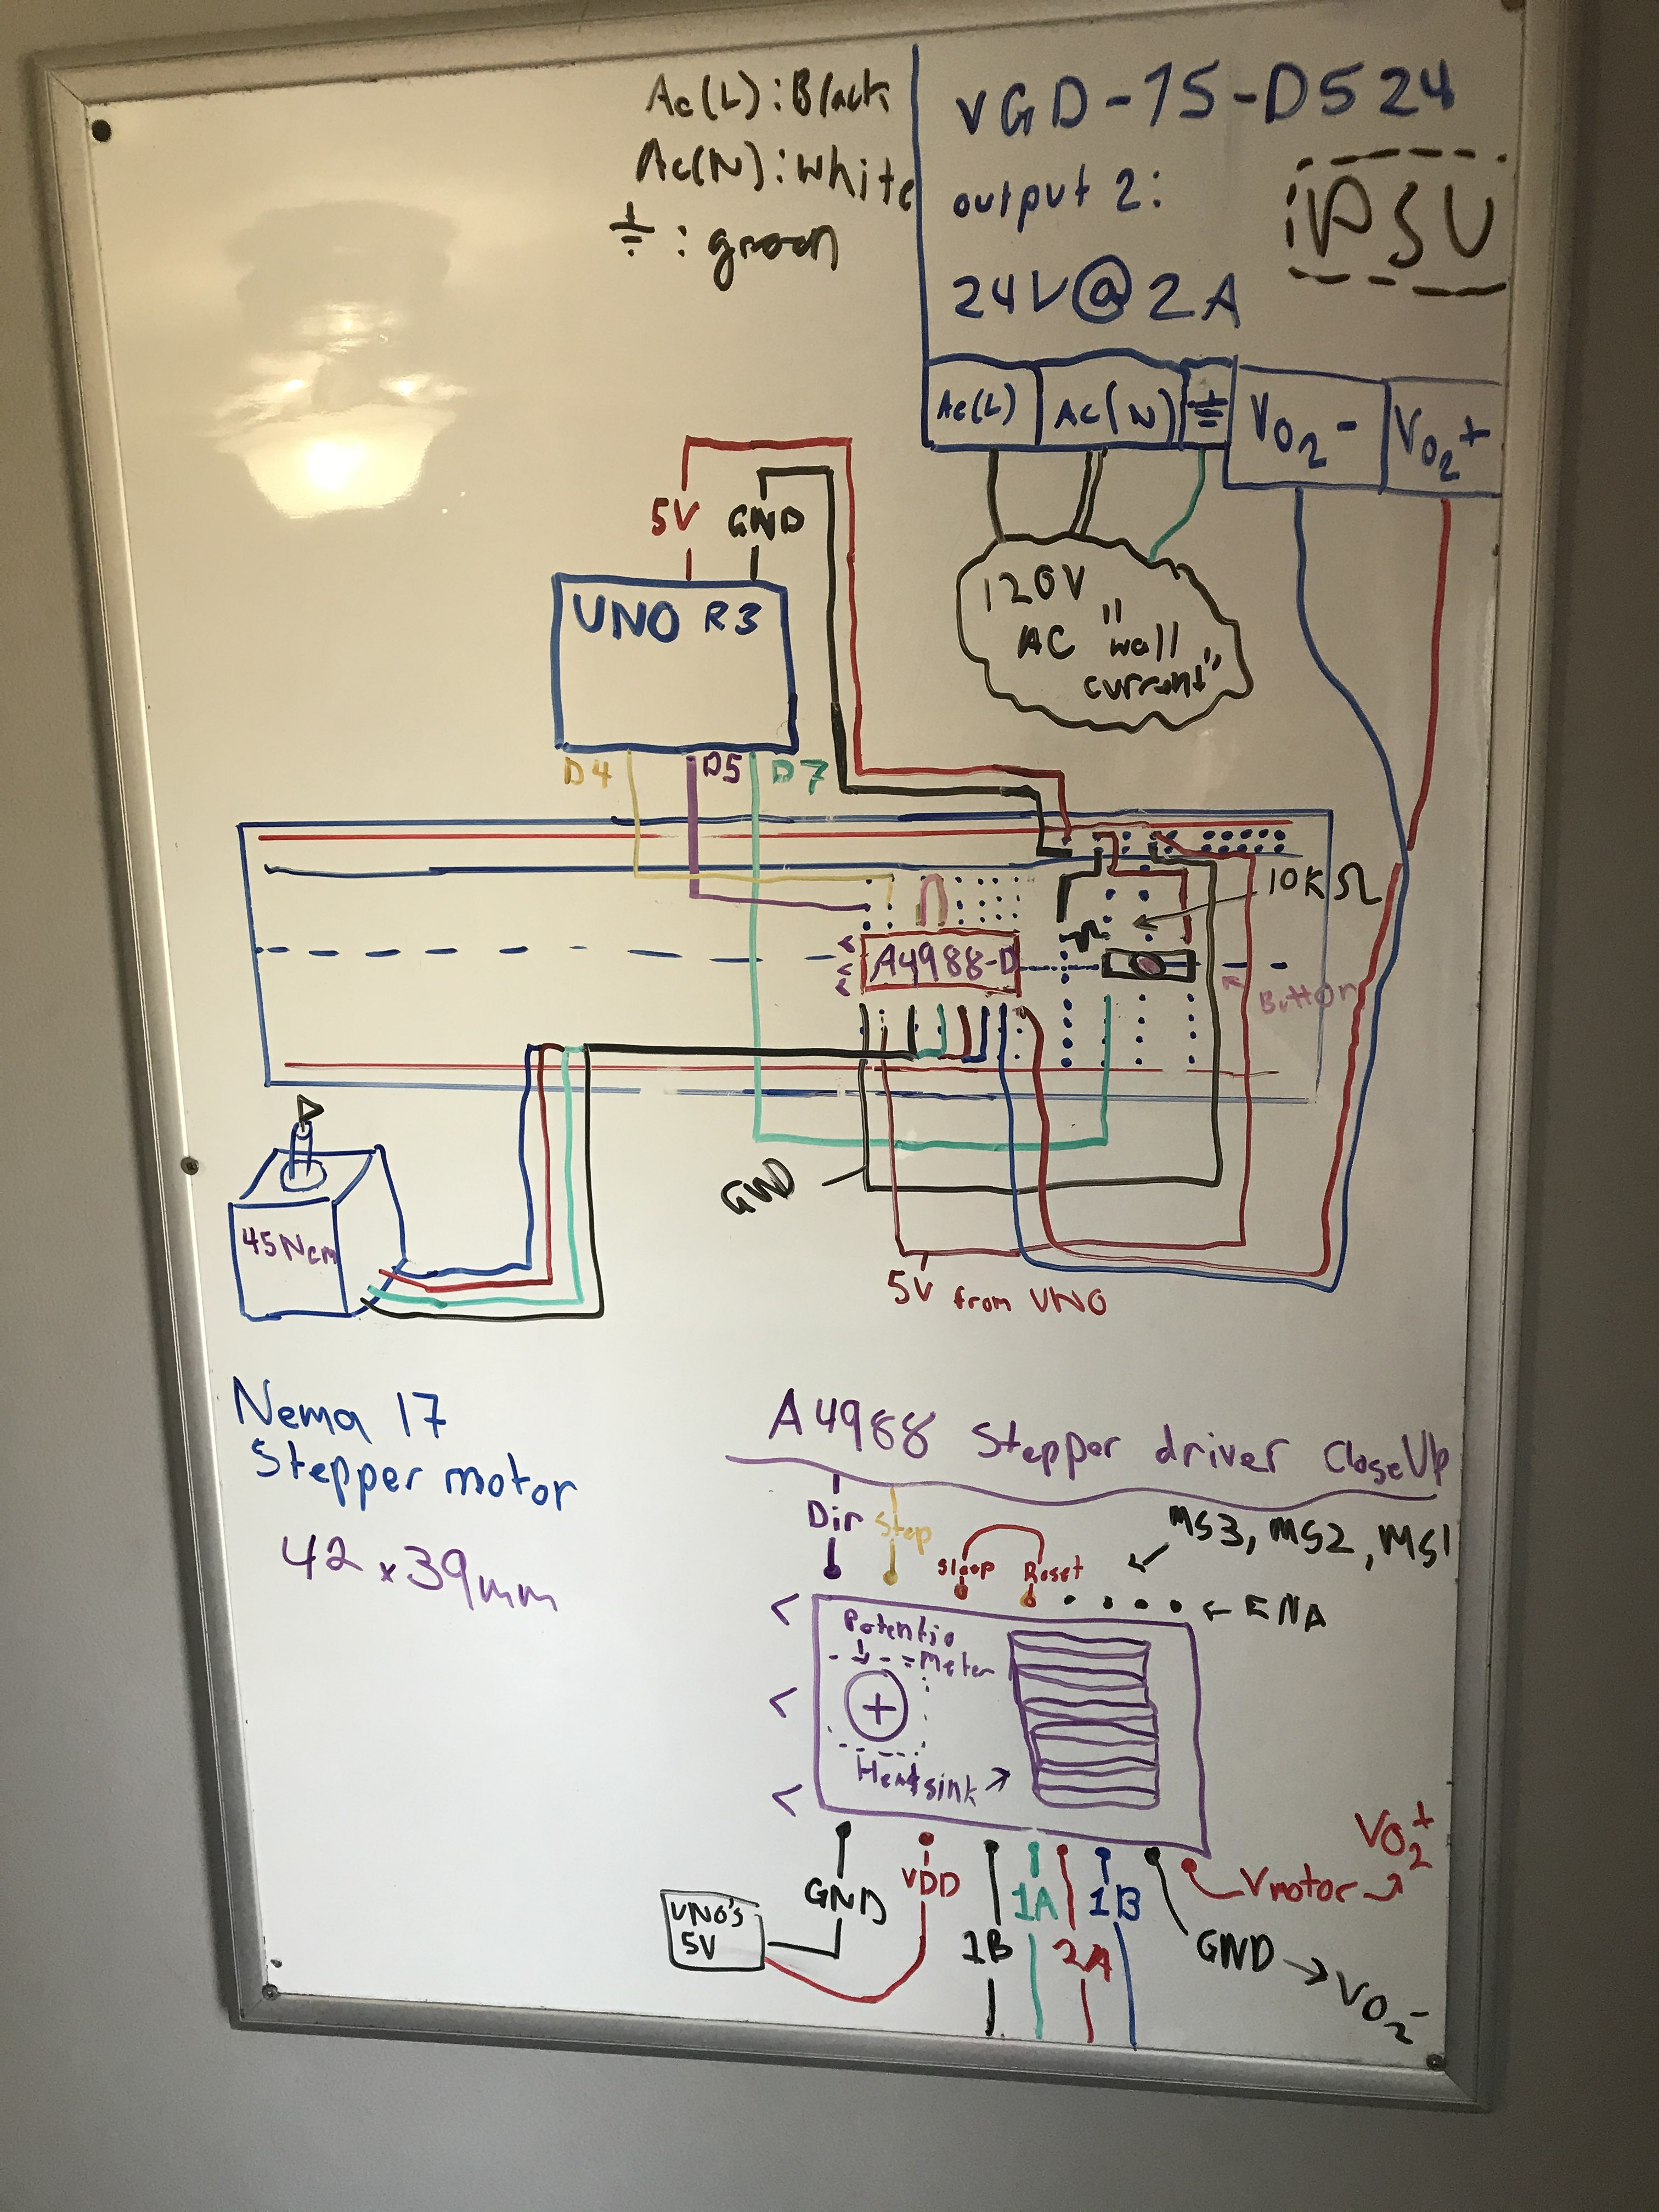 Ac(L): Black
Ac(N): White
⏚ : green
VGD-75-D524
output 2:
24V@2A
PSU
Ac(L)
AC(N)
⏚
VO2-
VO2+
120V
AC "wall
current"
5V
GND
UNO R3
D4
D5
D7
10K Ω
A4988-D
Button
GND
5V from UNO
45Ncm
Nema 17
Stepper motor
42 x 39mm
A4988 Stepper driver CloseUp
Dir
Step
Sleep
Reset
MS3, MS2, MS1
← ENA
Potentio
Meter
Heatsink
GND
VDD
UNO'S
5V
1B
1A
2A
1B
GND → VO2-
Vmotor → VO2+